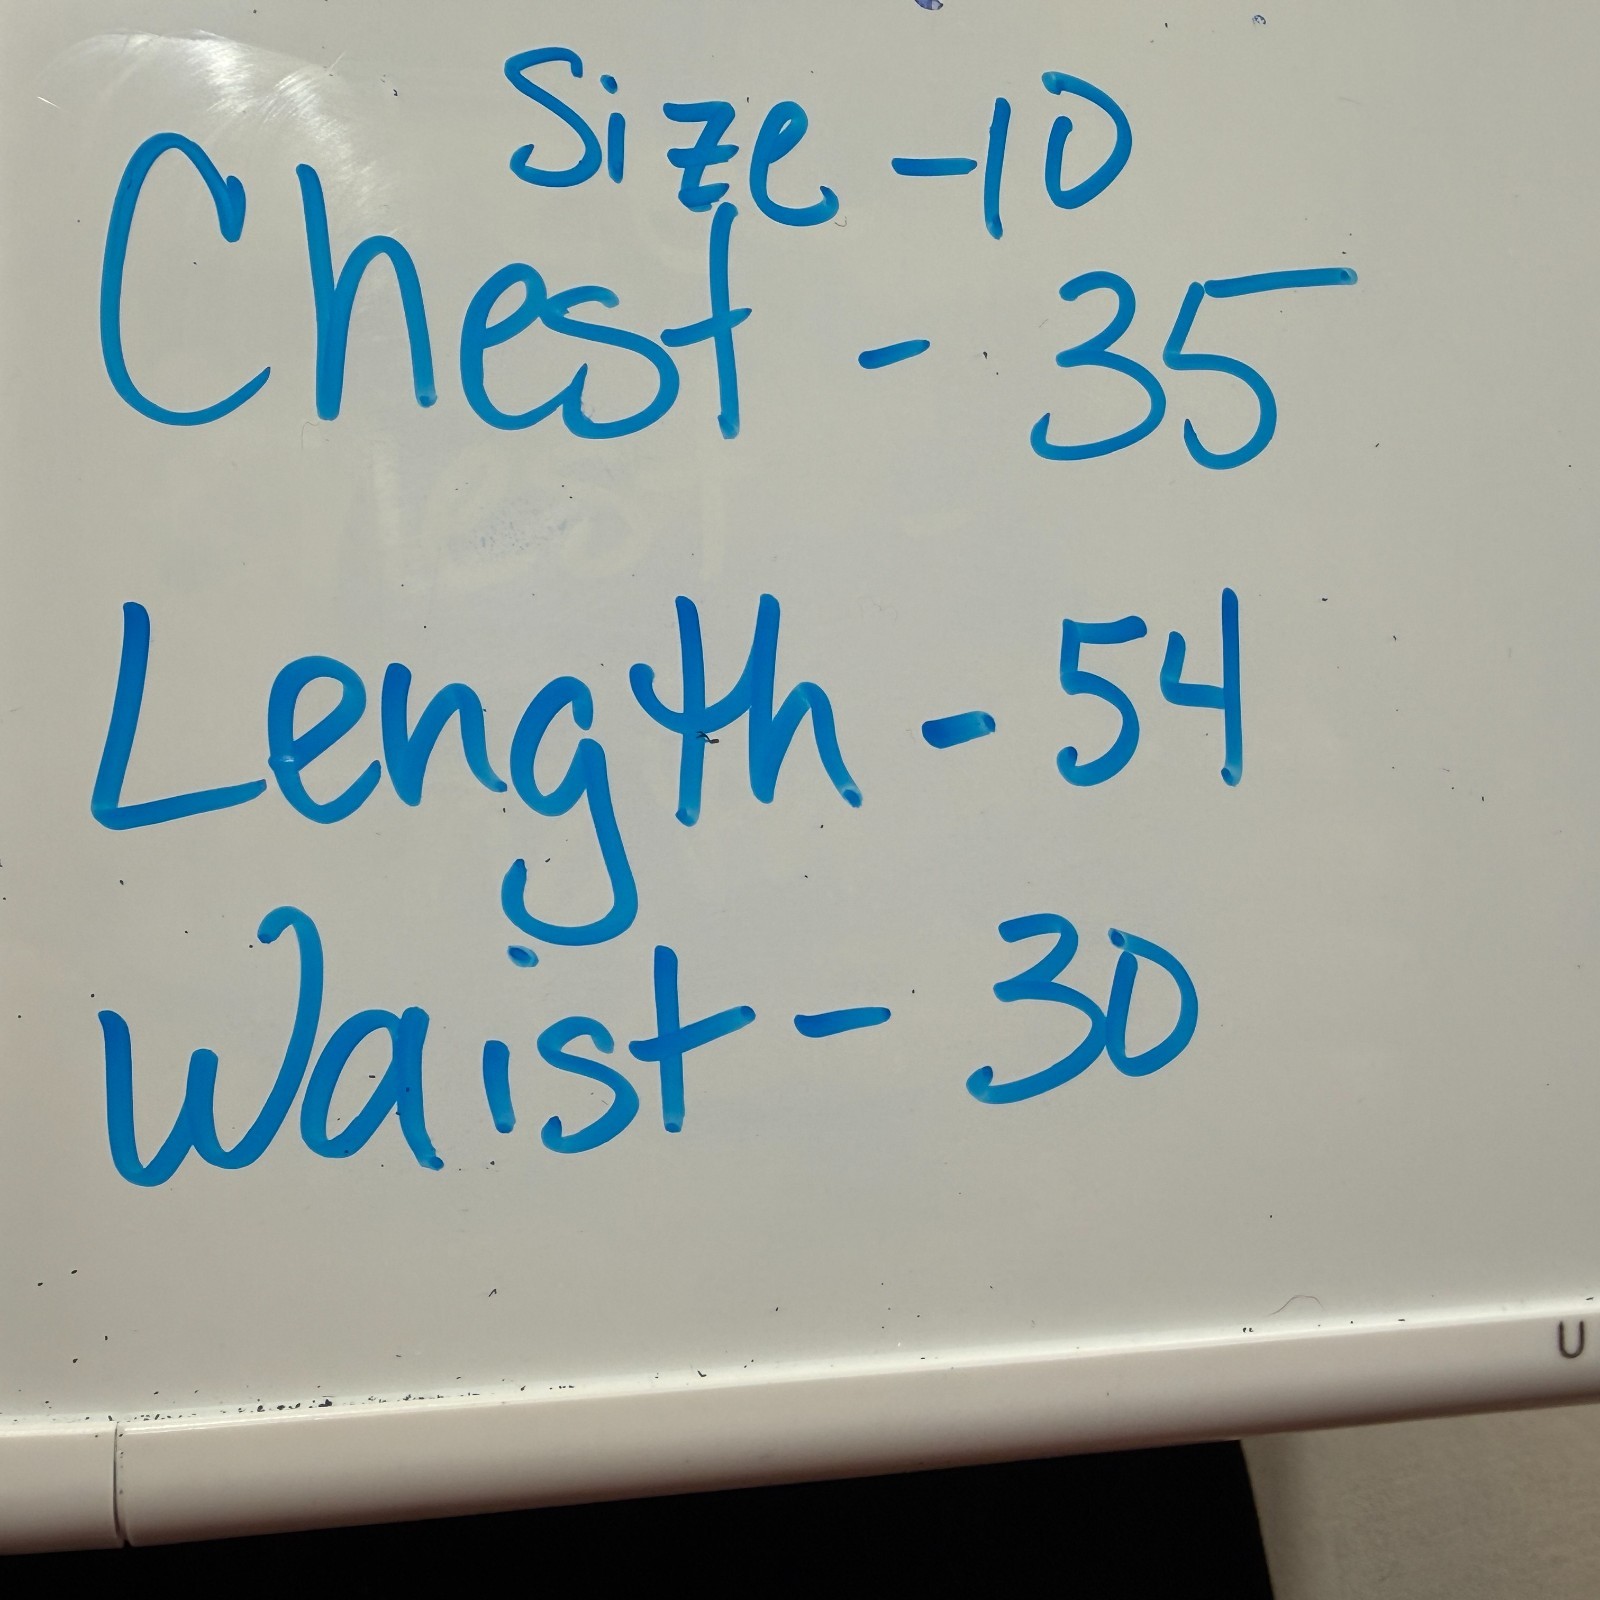 Size - 10
Chest - 35
Length - 54
Waist - 30
U